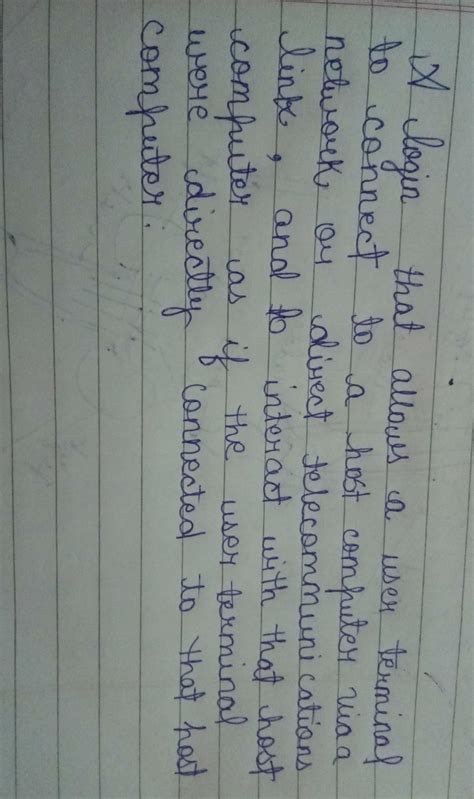 A login that allows a user terminal
to connect to a host computer via a
network or direct telecommunications
link, and to interact with that host
computer as if the user terminal
were directly connected to that host
computer.